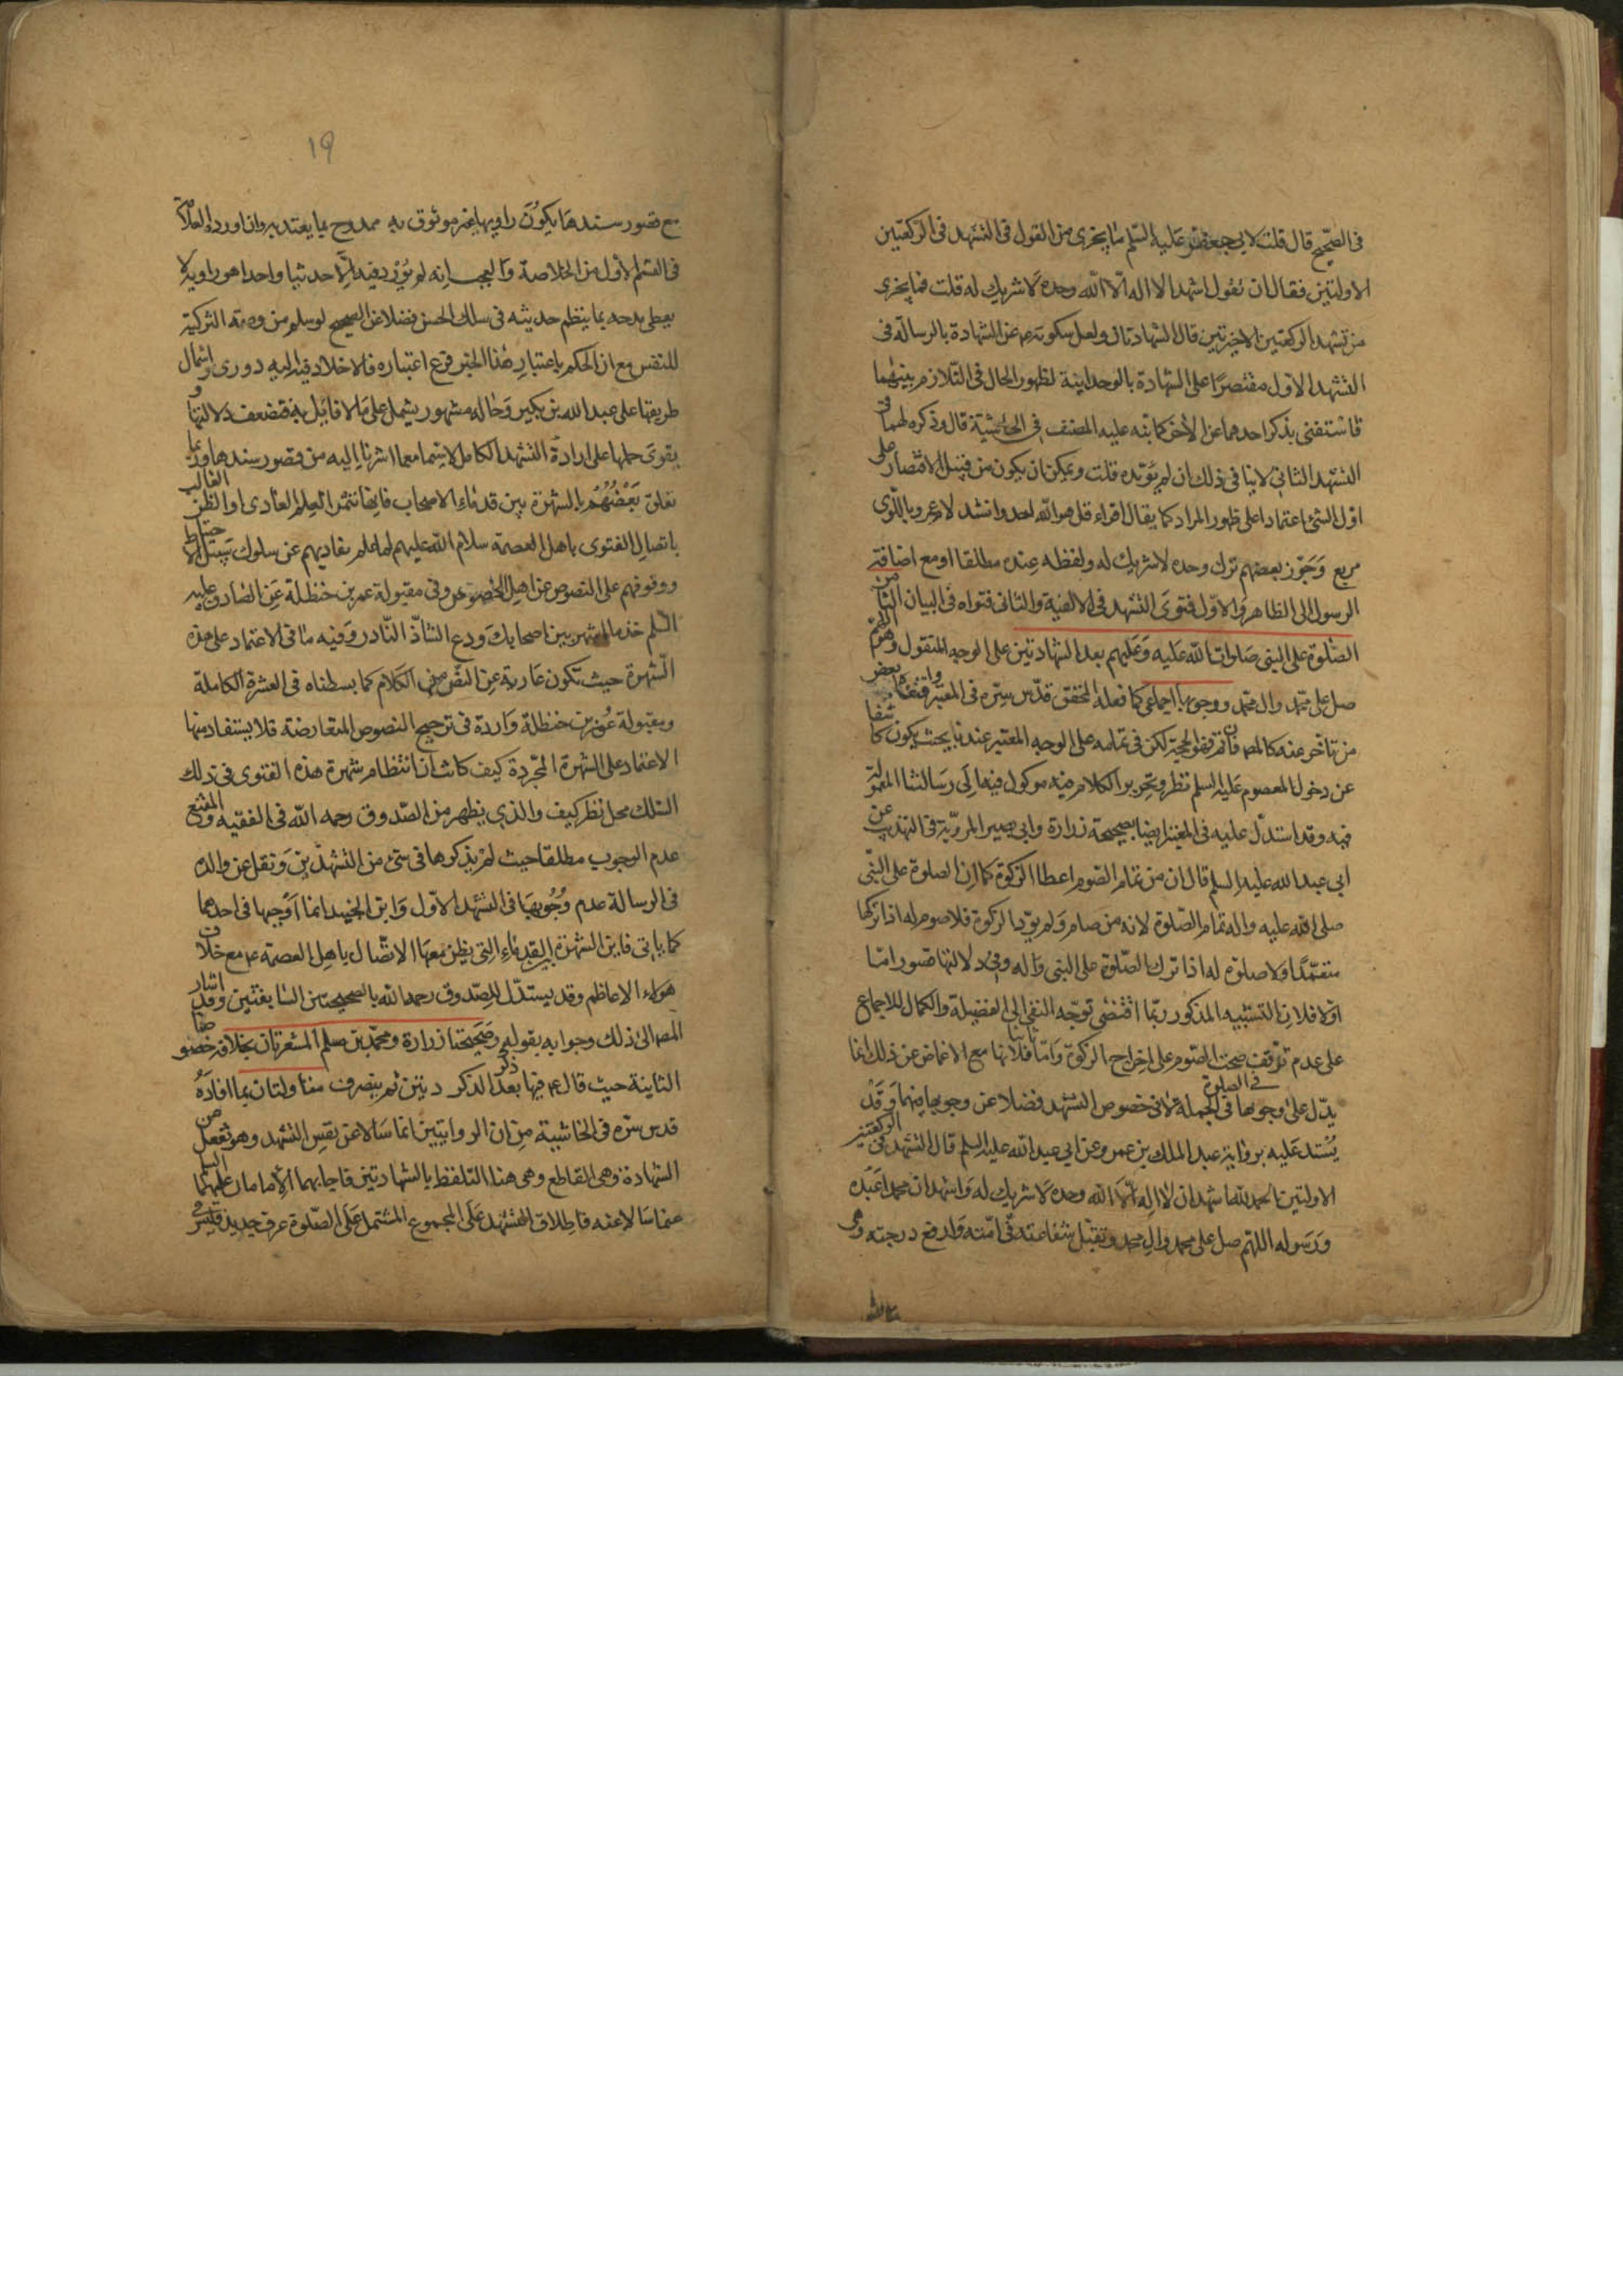 فى الصحيح قال قلت لابى جعفر عليه السلم ما يجزى من القول فى التشهد فى الركعتين
الاولتين فقال ان تقول اشهد ان لا اله الا الله وحده لا شريك له قلت فما يجزى
من تشهد الركعتين الاخيرتين قال الشهادتان ولعل سكوته عن الشهادة بالرسالة فى
التشهد الاول مقتصرا على الشهادة بالوحدانية لظهور الحال فى التلازم بينهما
فاستغنى بذكر احدهما عن الاخر كما نبه عليه المصنف فى الحاشية قال وذكره لهما فى
التشهد الثانى لا ينافى ذلك ان لم يؤيده قلت ويمكن ان يكون من قبيل الاقتصار على
اول الشئ اعتمادا على ظهور المراد كما يقال اقراء قل هو الله احد وانشد
وجوز بعضهم ترك وحده لا شريك له ولفظه عبده مطلقا او مع اضافة
الرسول الى الظاهر والاول فتوى التشهد فى الالفية والثانى فتواه فى البيان الثامن
الصلوة على النبى صلوات الله عليه وعليهم بعد الشهادتين على الوجه المنقول وهو اللهم
صل على محمد وال محمد ووجوبها اجماعى كما نقله المحقق قدس سره فى المعتبر واقتفاه بعض
من تاخر عنه كالمص فان تم فهو الحجة لكن فى تمامه على الوجه المعتبر عندنا بحيث يكون كاشفا
عن دخول المعصوم عليه السلم نظر وتحرير الكلام فيه موكول فيها الى رسالتنا المعمولة
فيه وقد استدل عليه فى المعتبر ايضا بصحيحة زرارة وابى بصير المروية فى التهذيب عن
ابى عبد الله عليه السلم قال ان من تمام الصوم اعطا الزكوة كما ان الصلوة على النبى
صلى الله عليه واله تمام الصلوة لانه من صام ولم يؤد الزكوة فلا صوم له اذا تركها
متعمدا ولا صلوة له اذا ترك الصلوة على النبى واله وفى دلالتها قصور اما
اولا فلان التشبيه المذكور ربما اقتضى توجه النفى الى الفضيلة والكمال للاجماع
على عدم توقف صحة الصوم على اخراج الزكوة واما ثانيا فلانها مع الاغماض عن ذلك انما
يدل على وجوبها فى الصلوة فى الجملة لا فى خصوص التشهد فضلا عن وجوبها فيهما وقد
يستدل عليه برواية عبد الملك بن عمرو عن ابى عبد الله عليه السلم قال التشهد فى الركعتين
الاولتين الحمد لله اشهد ان لا اله الا الله وحده لا شريك له واشهد ان محمدا عبده
ورسوله اللهم صل على محمد وال محمد وتقبل شفاعته فى امته وارفع درجته وهى
١٩
مع قصور سندها بكون راويها غير موثوق به ممدوح بما يعتد به وان اورده العلامة
فى القسم الاول من الخلاصة والعجب انه لم يورد فيه الا حديثا واحدا هو راويه لا
يعطى مدحه بما ينظم حديثه فى سلك الحسن فضلا عن الصحيح لو سلم من وصمة التزكية
للنفس مع ان الحكم باعتبار هذا الخبر فرع اعتباره فالاخلاد فيه اليه دورى واشتمال
طريقها على عبد الله بن بكير وحاله مشهور يشمل على ما لا قائل به فتضعف دلالتها و
يقوى حملها على ارادة التشهد الكامل لا سيما مع ما اشرنا اليه من قصور سندها وربما
تعلق بعضهم بالشهرة بين قدماء الاصحاب فانها تثمر العلم العادى او الظن الغالب
باتصال الفتوى باهل العصمة سلام الله عليهم لما علم من تفاديهم عن سلوك سبيل الاحتياط
ووقوفهم على النصوص عن اهل الخصوص وفى مقبولة عمر بن حنظلة عن الصادق عليه
السلم خذ بالمشتهر بين اصحابك ودع الشاذ النادر وفيه ما فى الاعتماد على هذه
الشهرة حيث تكون عارية عن النص من الكلام كما بسطناه فى العشرة الكاملة
ومقبولة عمر بن حنظلة واردة فى ترجيح النصوص المتعارضة فلا يستفاد منها
الاعتماد على الشهرة المجردة كيف كانت ان انتظام شهرة هذه الفتوى فى ذلك
السلك محل نظر كيف والذى يظهر من الصدوق رحمه الله فى الفقيه والمقنع
عدم الوجوب مطلقا حيث لم يذكرها فى شئ من التشهدين ونقل عن والده
فى الرسالة عدم وجوبها فى التشهد الاول وابن الجنيد انما اوجبها فى احدهما
كما ياتى فاين الشهرة بين القدماء التى يظن معها الاتصال باهل العصمة مع خلاف
هولاء الاعاظم وقد يستدل للصدوق رحمه الله بالصحيحتين السابقتين وقد اشار
المص الى ذلك وجوابه بقوله وصحيحتا زرارة ومحمد بن مسلم المشعرتان بخلافه خصوصا
الثانية حيث قال فيها بعد ذكر دتين ثم ينصرف متاولتان بما افاده
قدس سره فى الحاشية من ان الروايتين انما سالا عن نفس التشهد وهو تفعل من
الشهادة وهى القاطع وهى هنا التلفظ بالشهادتين فاجابهما الامامان عليهما السلم
عما سالا عنه فاطلاق التشهد على المجموع المشتمل على الصلوة عرف جديد